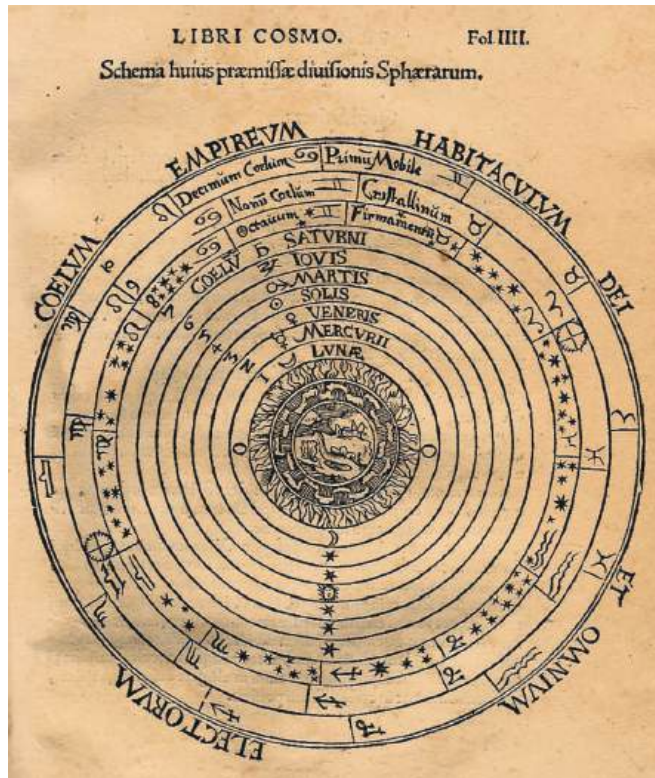 LIBRI COSMO. Fol. IIII.
Schema huius præmissæ diuisionis Sphærarum.
COELVM EMPIREVM HABITACVLVM DEI ET OMNIVM ELECTORVM
Decimum Coelum Primũ Mobile
Nonũ Coelum Cristallinum
Octauum Firmamentũ
COELV SATVRNI
IOVIS
MARTIS
SOLIS
VENERIS
MERCVRII
LVNÆ